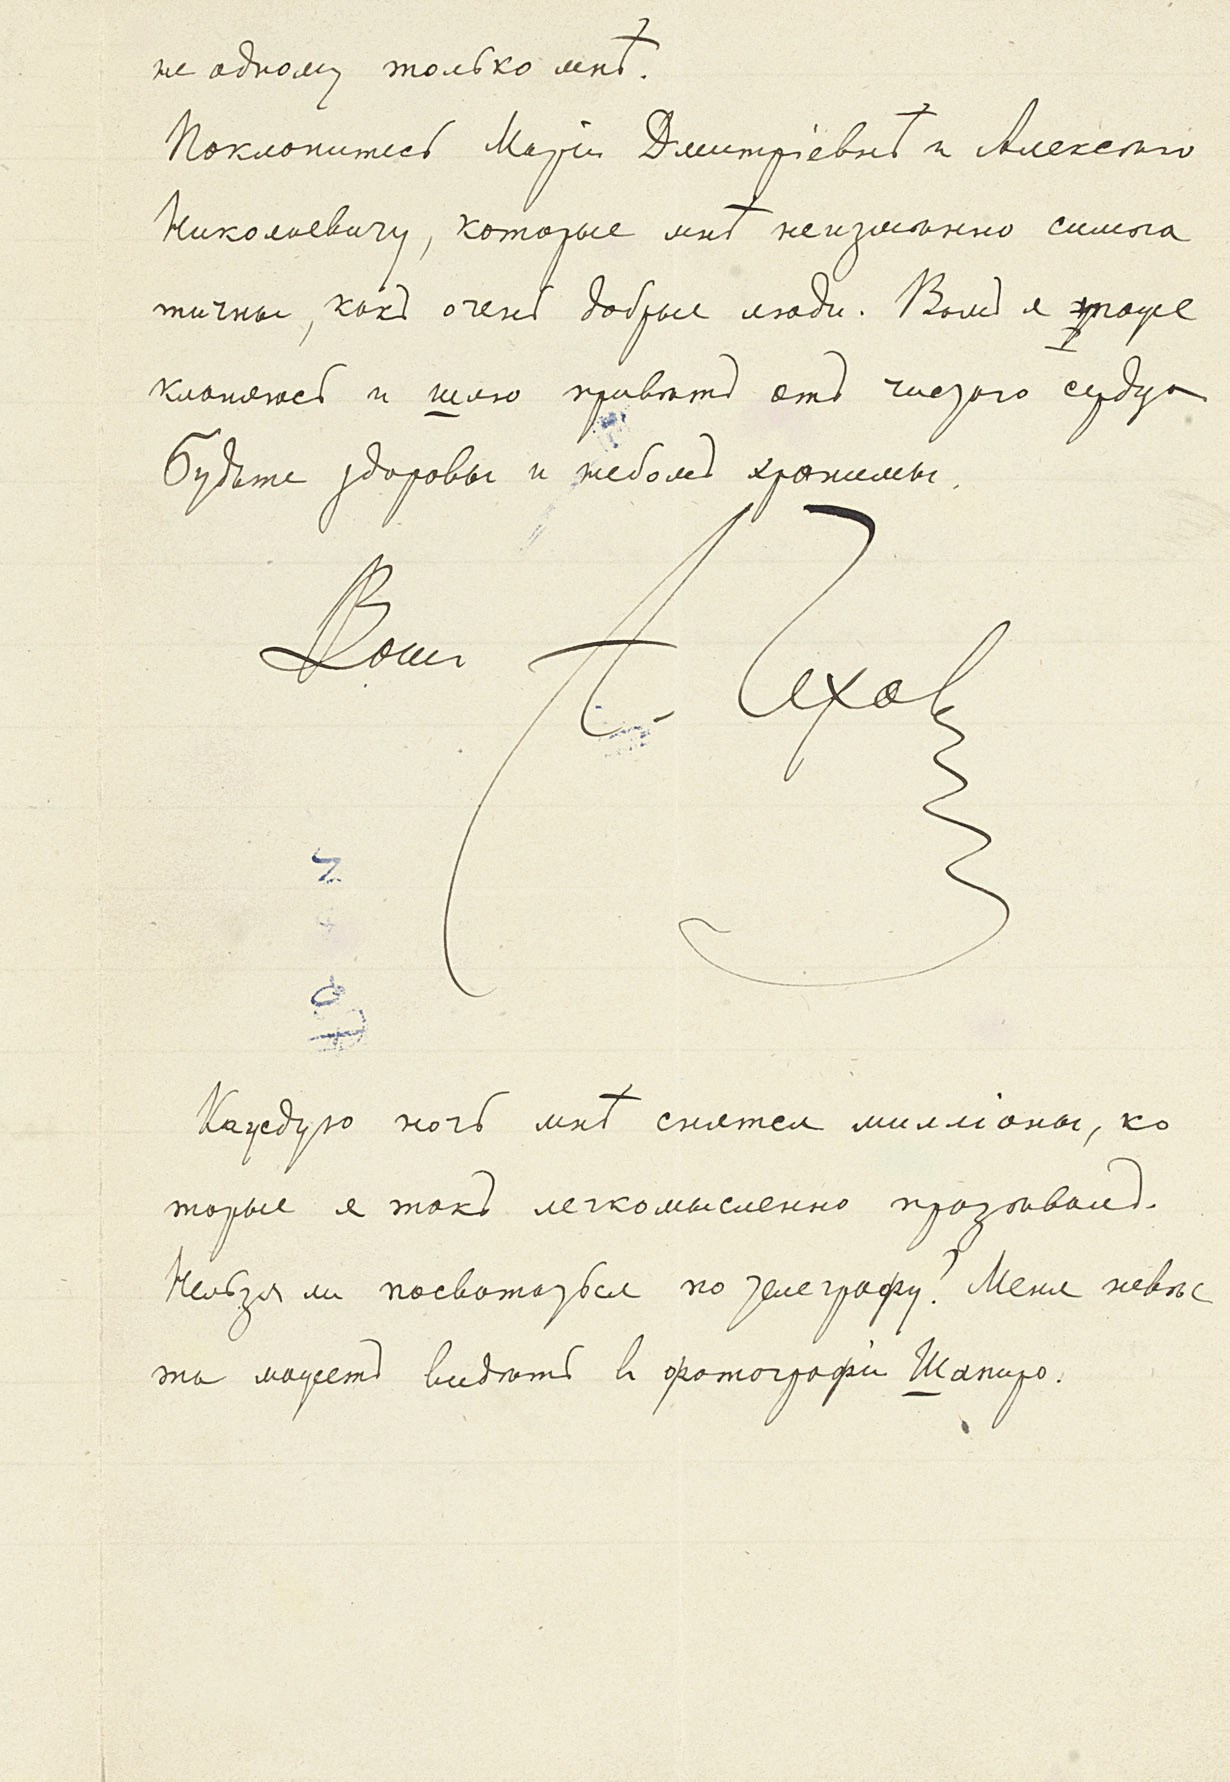 не одному только мнѣ.
Поклонитесь Маріи Дмитріевнѣ и Алексѣю
Николаевичу, которые мнѣ неизмѣнно симпа
тичны, какъ очень добрые люди. Вамъ я тоже
кланяюсь и шлю привѣтъ отъ чистаго сердца
Будьте здоровы и небомъ хранимы.
Ваш А. Чехов
Каждую ночь мнѣ снятся милліоны, ко
торые я такъ легкомысленно прозѣвалъ.
Нельзя ли посвататься по телеграфу? Меня невѣс
та можетъ видѣть в фотографіи Шапиро.